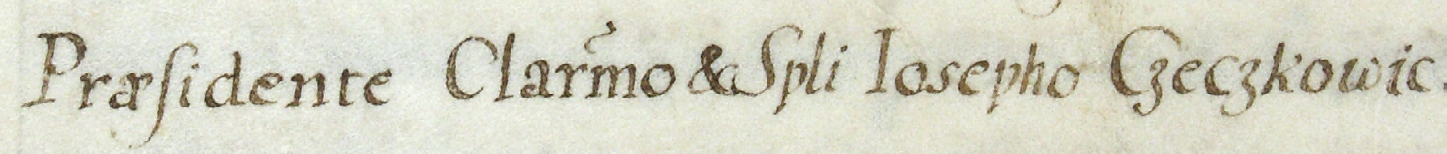 Præſidente Clar̃mo & Spli Iosepho Czeczkowic.